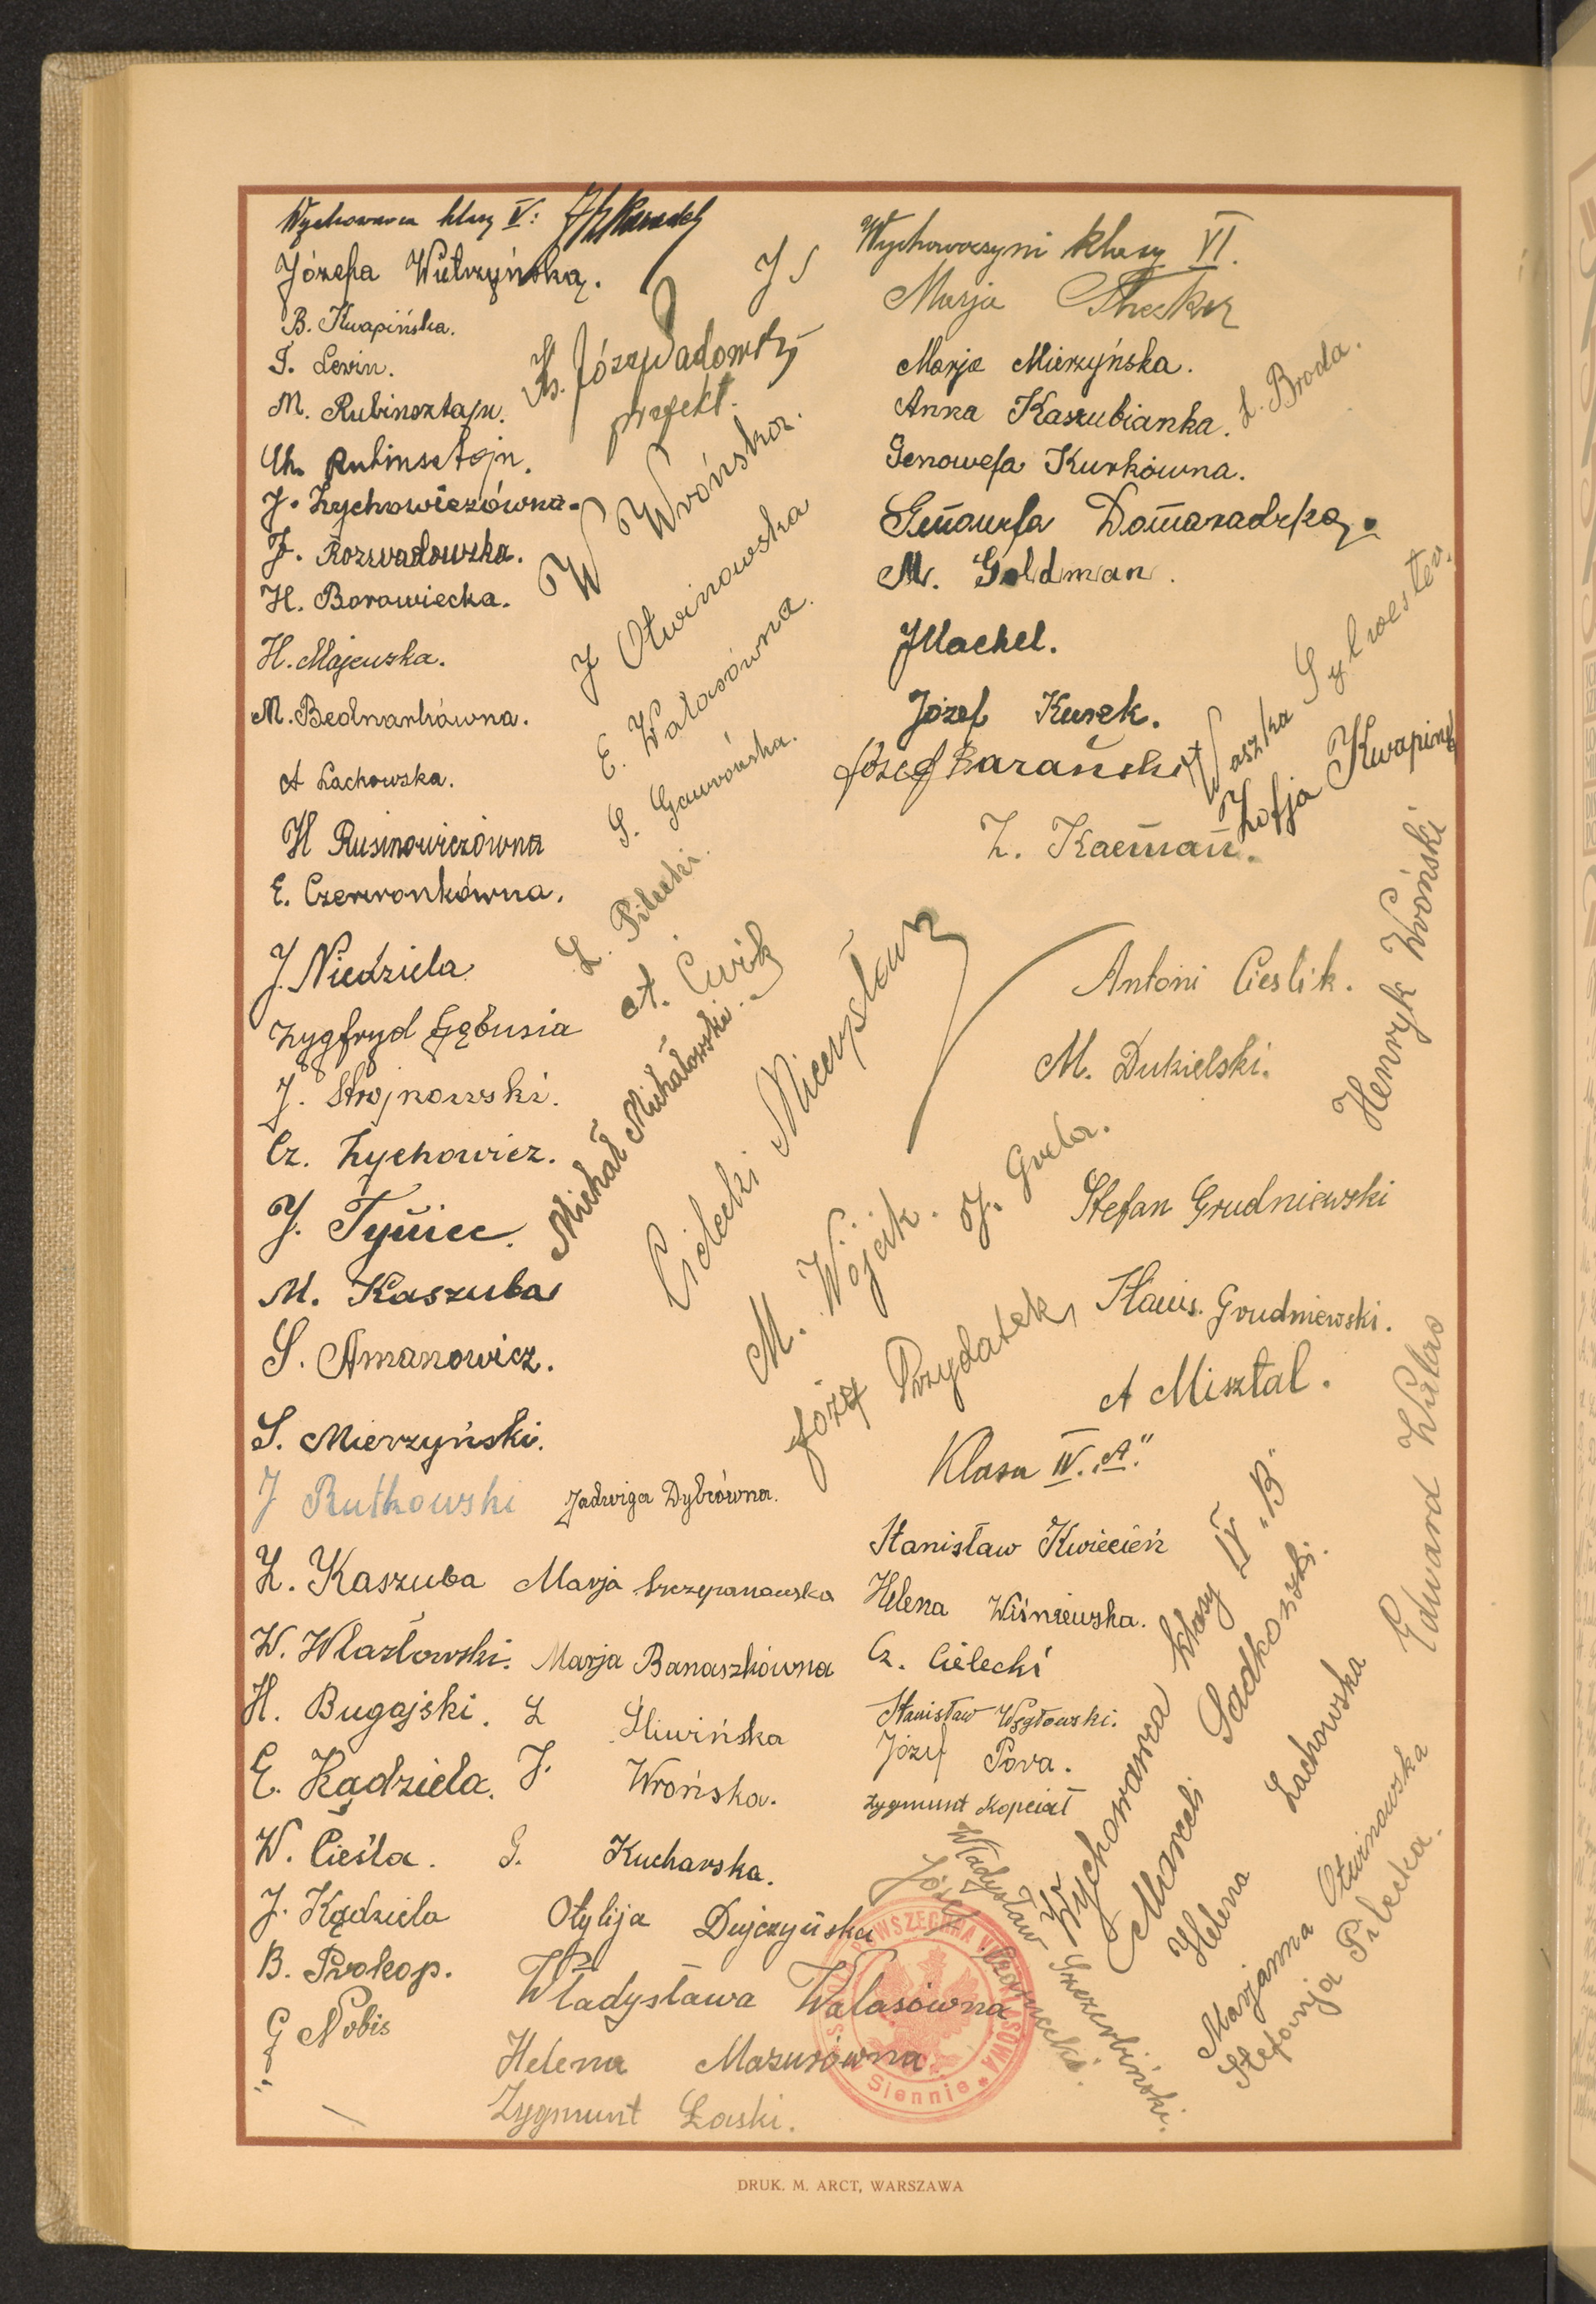 Wychowawca klasy V:
Józefa Wietrzyńska.
B. Kwapińska.
T. Lewin.
M. Rubinsztajn.
Ch. Rubinsztajn.
J. Zychowiczówna.
J. Rozwadowska.
H. Borowiecka.
H. Majewska.
M. Bednarkówna.
A Lachowska.
H Rusinowiczówna
E. Czerwonkówna.
J. Niedziela
Zygfryd Gębusia
J. Strojnowski.
Cz. Zychowicz.
J. Tyniec.
M. Kaszuba
S. Amanowicz.
S. Mierzyński.
J Rutkowski
Z. Kaszuba
W. Wlazłowski.
H. Bugajski.
E. Kądziela.
W. Cieśla.
J. Kądziela
B. Prokop.
G Nobis
J S
Ks. Józef Sadowski
prefekt.
W Wrońska.
J Otwinowska
E. Walasówna.
S. Gawrońska.
Z. Pilecki.
A. Ćwik
Michał Michałowski.
Cielecki Mieczysław
M. Wójcik.
J. Grela.
Józef Przydatek
Jadwiga Dybrówna.
Marja Szczepanowska
Marja Banaszkówna
Z Śliwińska
J. Wrońska.
G. Kucharska.
Otylija Dujczyńska
Władysława Walasówna
Helena Mazurówna
Zygmunt Łaski.
Wychowawczyni klasy VI.
Marja
Marja Mierzyńska.
Anna Kaszubianka.
L. Broda.
Genowefa Kurkówna.
Genowefa Domaradzka.
M. Goldman.
J Machel.
Józef Kuszk.
Józef Barański
Waszka Sylwester.
Zofja Kwapinsk
Z. Kacman.
Antoni Cieslik.
Henryk Wroński
M. Dukielski.
Stefan Grudniewski
Stanis. Grudniewski.
A Misztal.
Edward Walas
Klasa IV. „A"
Stanisław Kwiecień
Helena Wiśniewska.
Cz. Cielecki
Stanisław Węgłowski.
Józef Pora.
Zygmunt Kopciał
Władysław Skrzerbiński.
Józef
Wychowawca klasy IV „B"
Marceli Sadkowski.
Helena Lachowska
Marjanna Otwinowska
Stefanja Pilecka.
POWSZECHNA
w Siennie
DRUK. M. ARCT, WARSZAWA